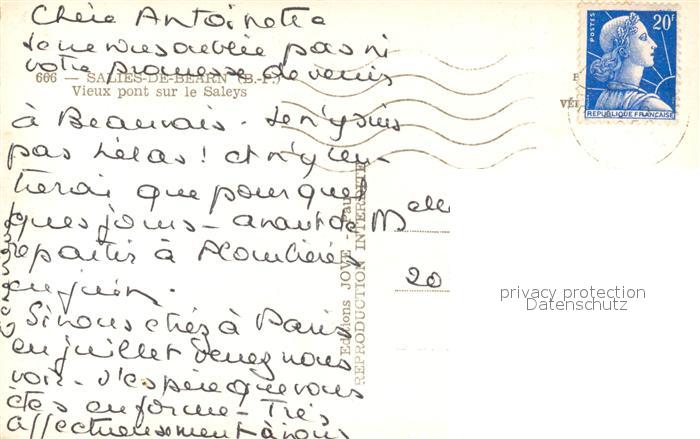 Chère Antoinette
Je ne vous oublie pas ni
votre promesse de venir
666 — SALIES-DE-BEARN (B.-P.)
Vieux pont sur le Saleys
à Beauvais. Je n'y suis
pas hélas ! et n'y ren-
trerai que pour quel
ques jours - avant de
repartir à Plombières
en juin.
Si vous êtes à Paris
en juillet venez nous
voir. J'espère que vous
êtes en forme - Très
affectueusement à vous
Editions JOVE - Pau
REPRODUCTION INTERDITE
Melle
20
POSTES
20F
REPUBLIQUE FRANÇAISE
privacy protection
Datenschutz